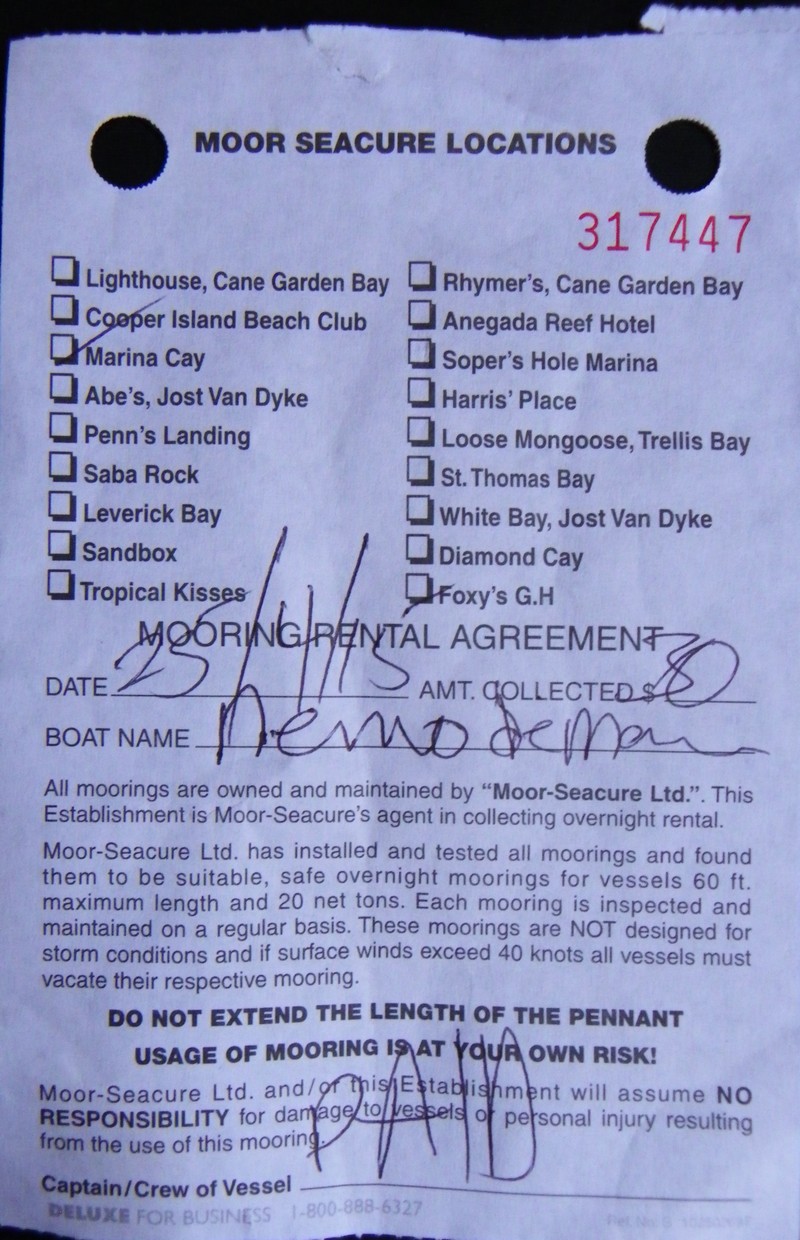 MOOR SEACURE LOCATIONS
317447
Lighthouse, Cane Garden Bay
Cooper Island Beach Club
Marina Cay
Abe's, Jost Van Dyke
Penn's Landing
Saba Rock
Leverick Bay
Sandbox
Tropical Kisses
Rhymer's, Cane Garden Bay
Anegada Reef Hotel
Soper's Hole Marina
Harris' Place
Loose Mongoose, Trellis Bay
St. Thomas Bay
White Bay, Jost Van Dyke
Diamond Cay
Foxy's G.H
MOORING RENTAL AGREEMENT
DATE 25/11/15 AMT. COLLECTED $ 30
BOAT NAME
All moorings are owned and maintained by "Moor-Seacure Ltd.". This
Establishment is Moor-Seacure's agent in collecting overnight rental.
Moor-Seacure Ltd. has installed and tested all moorings and found
them to be suitable, safe overnight moorings for vessels 60 ft.
maximum length and 20 net tons. Each mooring is inspected and
maintained on a regular basis. These moorings are NOT designed for
storm conditions and if surface winds exceed 40 knots all vessels must
vacate their respective mooring.
DO NOT EXTEND THE LENGTH OF THE PENNANT
USAGE OF MOORING IS AT YOUR OWN RISK!
Moor-Seacure Ltd. and/or this Establishment will assume NO
RESPONSIBILITY for damage to vessels or personal injury resulting
from the use of this mooring.
PAID
Captain/Crew of Vessel
DELUXE FOR BUSINESS 1-800-888-6327